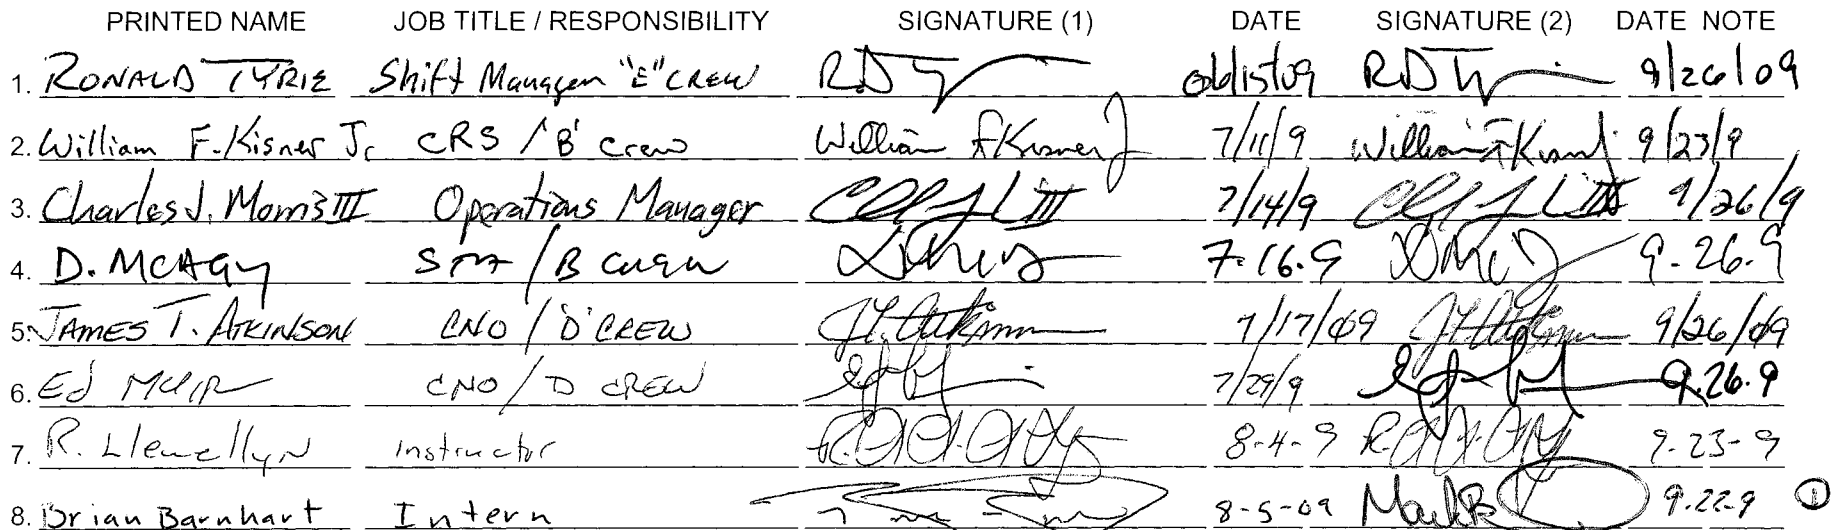 PRINTED NAME JOB TITLE / RESPONSIBILITY SIGNATURE (1) DATE SIGNATURE (2) DATE NOTE
1. RONALD TYRIE Shift Manager "E" CREW RDT 06/15/09 RDT 9/26/09
2. William F. Kisner Jr CRS / 'B' Crew William F Kisner J 7/11/9 William F Kisner J 9/23/9
3. Charles J. Morris III Operations Manager III 7/14/9 III 9/26/9
4. D. MCAGY / B CREW 7.16.9 9.26.9
5. JAMES T. ATKINSON CNO / 'D' CREW J.T. Atkinson 7/17/09 J.T. Atkinson 9/26/09
6. Ed MUIR CNO / D CREW 7/29/9 9.26.9
7. R. Llewellyn instructor 8-4-9 9-23-9
8. Brian Barnhart Intern 8-5-09 Mark B 9.22.9 ①